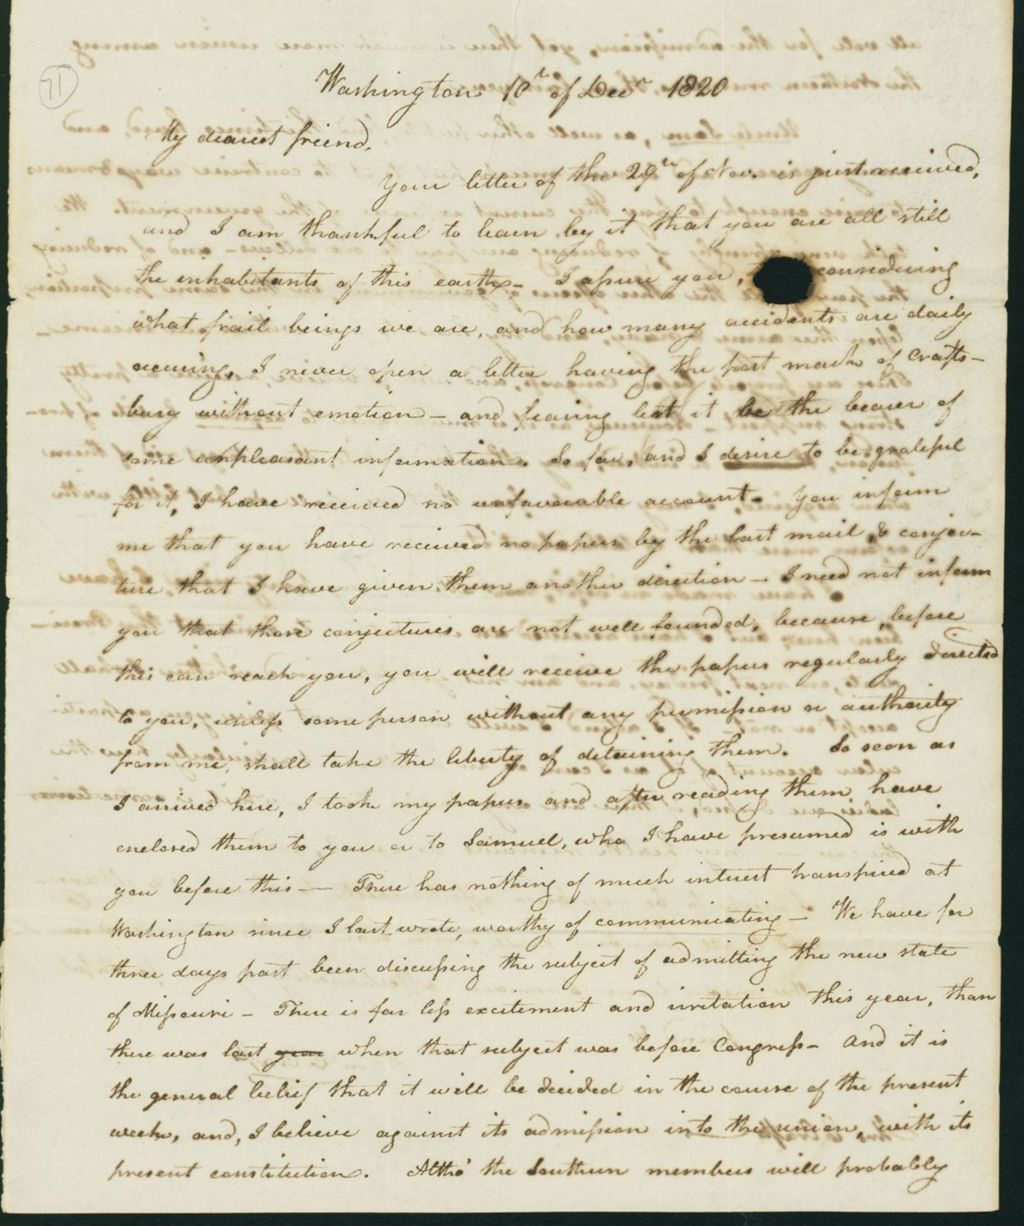 71
Washington 10th of Decr 1820
My dearest friend,
Your letter of the 29th of Nov. is just received,
and I am thankful to learn by it that you are all still
the inhabitants of this earth — I assure you, considering
what frail beings we are, and how many accidents are daily
occuring, I never open a letter having the post mark of Crafts-
bury without emotion — and fearing lest it be the bearer of
some unpleasant information. So far, and I desire to be grateful
for it, I have received no unfavourable account. You inform
me that you have received no papers by the last mail, & conjec-
ture that I have given them another direction — I need not inform
you that those conjectures are not well founded, because, before
this can reach you, you will receive the papers regularly directed
to you, unless some person without any permission or authority
from me, shall take the liberty of detaining them. So soon as
I arrived here, I took my papers and after reading them have
enclosed them to you or to Samuel, who I have presumed is with
you before this — There has nothing of much interest transpired at
Washington since I last wrote, worthy of communicating — We have for
three days past been discussing the subject of admitting the new state
of Missouri — There is far less excitement and irritation this year, than
there was last year when that subject was before Congress — And it is
the general belief that it will be decided in the course of the present
week, and, I believe against its admission into the union, with its
present constitution. Altho' the Southern members will probably